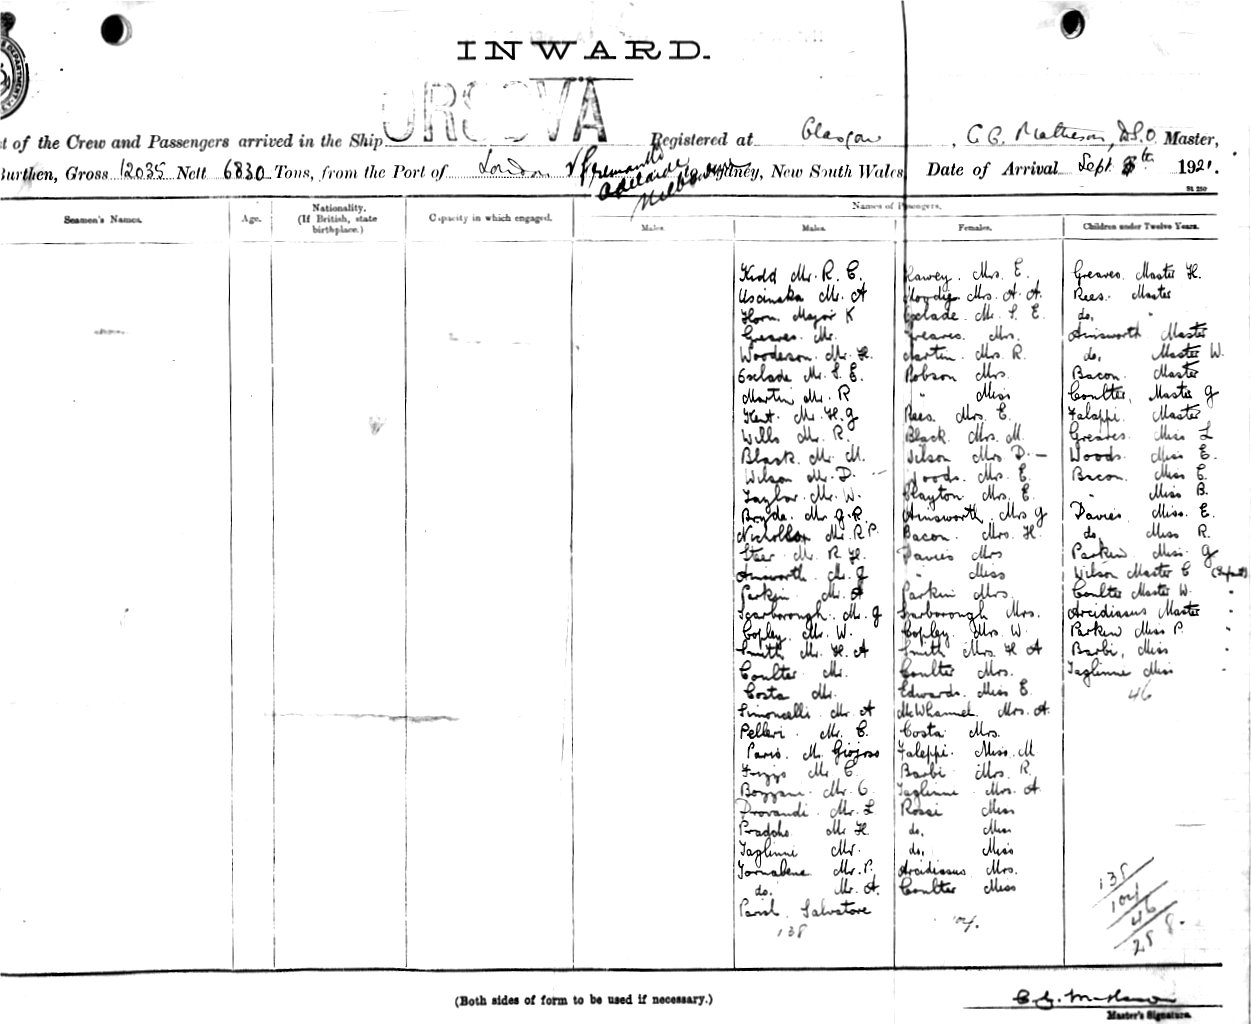 INWARD.
ORSOVA
t of the Crew and Passengers arrived in the Ship Registered at Glasgow, C G. Matheson, D.S.O Master,
Burthen, Gross 12035 Nett 6830 Tons, from the Port of London V Fremantle Adelaide Melbourne to Sydney, New South Wales Date of Arrival Sept 8th 1921.
St 250
Seamen's Names. Age. Nationality. (If British, state birthplace.) Capacity in which engaged. Names of Passengers.
Males. Males. Females. Children under Twelve Years.
Kidd Mr. R. C. Hawey. Mrs. E. Greaves. Master H.
Uscinska Mr. A Moody. Mrs. A. A. Rees. Master
Horn. Major K Exelade. Mr. S. E. do. "
Greaves. Mr. Greaves. Mrs. Ainsworth Master
Wooderson. Mr. H. Martin. Mrs. R. do, Master W.
Exelade Mr. S. E. Robson Mrs. Bacon. Master
Martin Mr. R " Miss Coulter, Master G
Kent. Mr. H. G Rees. Mrs. E. Falappi. Master
Wills Mr. R. Black. Mrs. M. Greaves. Miss L
Black. Mr. M. Wilson Mrs D. — Woods. Miss E.
Wilson Mr. D. — Woods. Mrs. E. Bacon. Miss C.
Taylor. Mr. W. Clayton Mrs. E. " Miss B.
Bryde. Mr. G. R. Ainsworth Mrs G Davies Miss. E.
Mr. R P. Bacon. Mrs. H. do, Miss R.
Steer Mr. R. H. Davies Mrs Parkin Miss G
Ainsworth. Mr. G " Miss Wilson Master C (Infant)
Parkin Mr. A Parkin Mrs. Coulter Master W. "
Scarborough. Mr. G Scarborough Mrs. Arcidiasus Master "
Copley. Mr. W. Copley. Mrs. W. Parkin Miss P. "
Smith Mr. H. A Smith Mrs. H A Barbi, Miss "
Coulter Mr. Coulter Mrs. Taglinni Miss "
Costa Mr. Edwards. Miss E. 46
Simoncelli. Mr. A McWhannel. Mrs. A.
Pelleri. Mr. C. Costa Mrs.
Paris. M. Giojoso Falappi. Miss. M
Mr. C. Barbi Mrs. R.
Mr. C. Taglinni Mrs. A
Provandi. Mr. L Rossi Miss
Mr H. do, Miss
Taglinni Mr. do, Miss
Tornabene Mr. P. Arcidiasus Mrs.
do. Mr. A. Coulter Miss
Salvatore
138 104.
138
104
46
288.
(Both sides of form to be used if necessary.)
C. G. Matheson
Master's Signature.